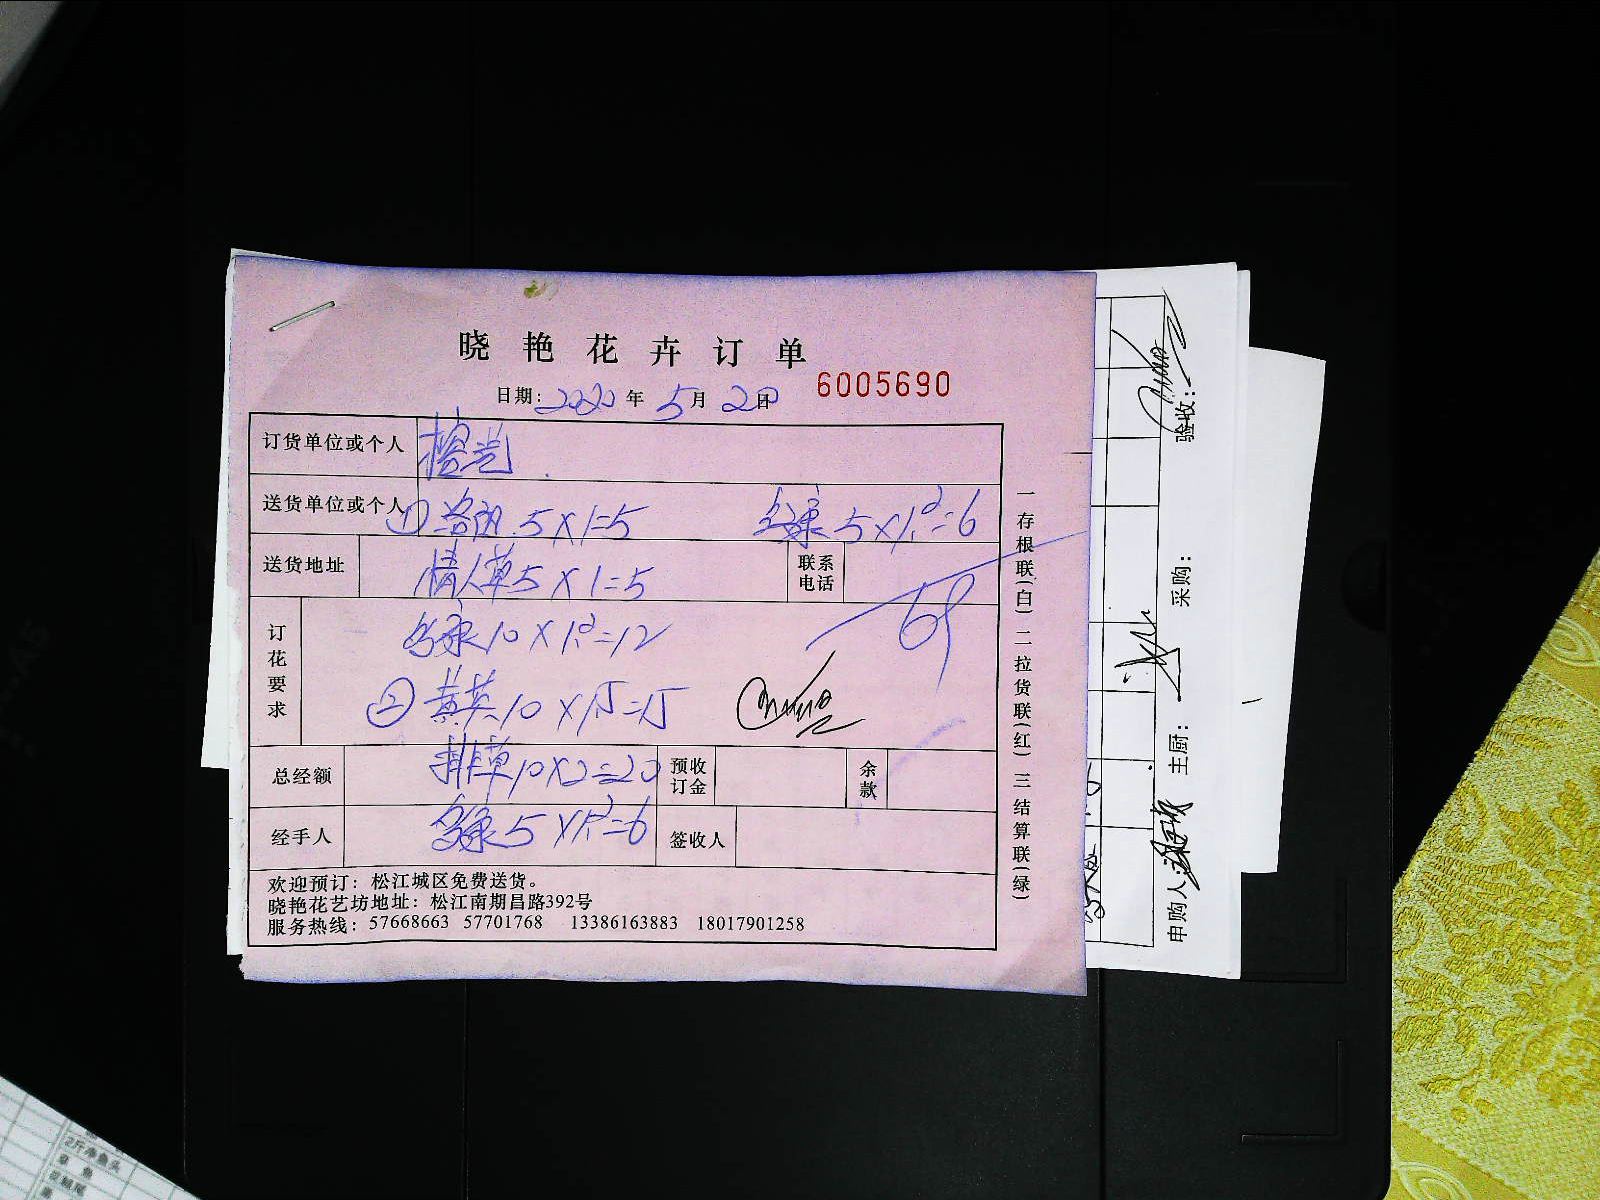 晓艳花卉订单
日期: 2020 年 5 月 20 日 6005690
订货单位或个人
送货单位或个人 ① 洛阳 5×1=5 多绿 5×1.2=6
送货地址 情人草 5×1=5 联系电话
订花要求 多绿 10×1.2=12
69
② 黄英 10×1.5=15
总经额 排草 10×2=20 预收订金 余款
经手人 多绿 5×1.2=6 签收人
欢迎预订：松江城区免费送货。
晓艳花艺坊地址：松江南期昌路392号
服务热线：57668663 57701768 13386163883 18017901258
一存根联(白) 二拉货联(红) 三结算联(绿)
申购人: 主厨: 采购: 验收: